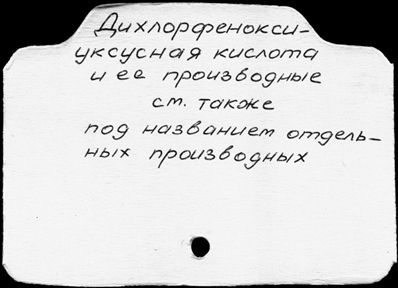 Дихлорфенокси-
уксусная кислота
и ее производные
см. также
под названием отдель-
ных производных